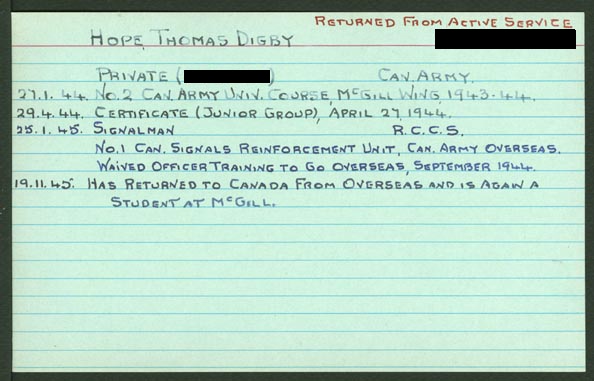 RETURNED FROM ACTIVE SERVICE
HOPE, THOMAS DIGBY
PRIVATE ( ) CAN. ARMY.
27.1. 44. NO. 2 CAN. ARMY UNIV. COURSE, MCGILL WING, 1943-44.
29.4. 44. CERTIFICATE (JUNIOR GROUP), APRIL 27, 1944.
25.1. 45. SIGNALMAN R.C.C.S.
NO. 1 CAN. SIGNALS REINFORCEMENT UNIT, CAN. ARMY OVERSEAS.
WAIVED OFFICER TRAINING TO GO OVERSEAS, SEPTEMBER 1944.
19.11. 45. HAS RETURNED TO CANADA FROM OVERSEAS AND IS AGAIN A
STUDENT AT MCGILL.